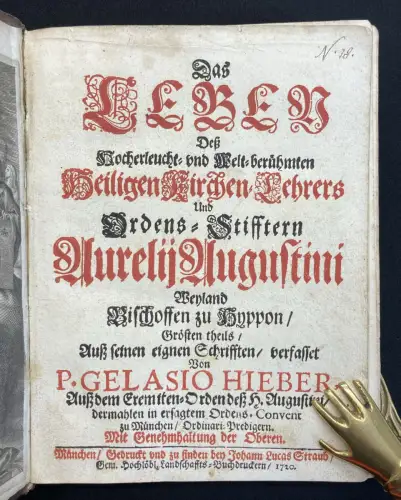 N. 18.
Das
LEBEN
Deß
Hocherleucht- vnd Welt-berühmten
Heiligen Kirchen-Lehrers
Und
Ordens-Stifftern
Aurelij Augustini
Weyland
Bischoffen zu Hyppon/
Grösten theils/
Auß seinen eignen Schrifften/ verfasset
Von
P. GELASIO HIEBER,
Auß dem Eremiten-Orden deß H. Augustini/
dermahlen in ersagtem Ordens-Convent
zu München/ Ordinari-Predigern.
Mit Genehmhaltung der Oberen.
München/ Gedruckt und zu finden bey Johann Lucas Straub/
Gem. Hochlöbl. Landschaffts-Buchdruckern/ 1720.